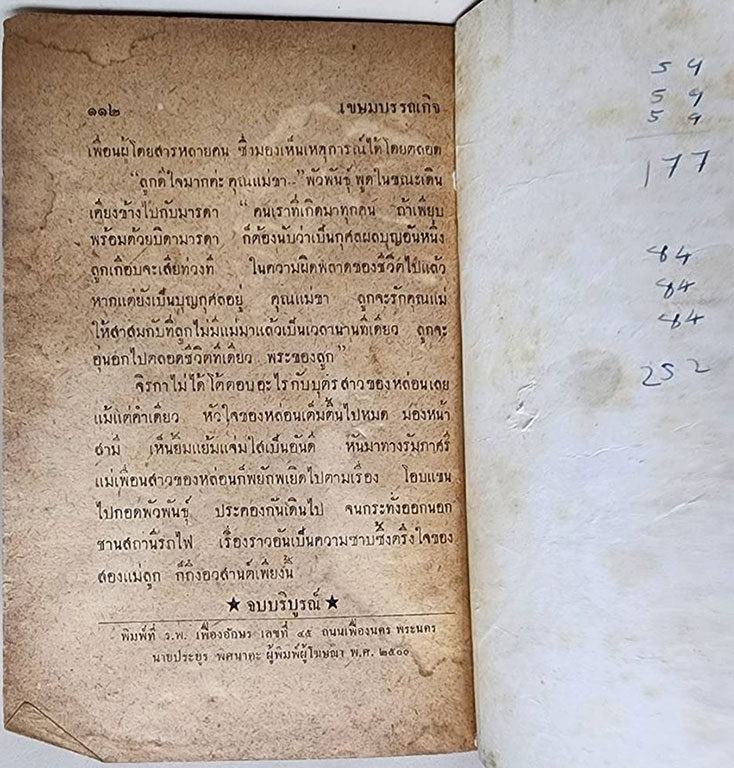 ๑๑๒ เขษมบรรณกิจ
เพื่อนผู้โดยสารหลายคน ซึ่งมองเห็นเหตุการณ์ได้โดยตลอด
"ลูกดีใจมากค่ะ คุณแม่ขา.." พัวพันธุ์ พูดในขณะเดิน
เคียงข้างไปกับมารดา "คนเราที่เกิดมาทุกคน ถ้าเพียบ
พร้อมด้วยบิดามารดา ก็ต้องนับว่าเป็นกุศลผลบุญอันหนึ่ง
ลูกเกือบจะเสียท่วงที ในความผิดพลาดของชีวิตไปแล้ว
หากแต่ยังเป็นบุญกุศลอยู่ คุณแม่ขา ลูกจะรักคุณแม่
ให้สาสมกับที่ลูกไม่มีแม่มาแล้วเป็นเวลานานทีเดียว ลูกจะ
อุ่นอกไปตลอดชีวิตทีเดียว พระของลูก"
จิรกาไม่ได้โต้ตอบอะไรกับบุตรสาวของหล่อนเลย
แม้แต่คำเดียว หัวใจของหล่อนเต็มตื้นไปหมด มองหน้า
สามี เห็นยิ้มแย้มแจ่มใสเป็นอันดี หันมาทางรัมภาศรี
แม่เพื่อนสาวของหล่อนก็พยักพเยิดไปตามเรื่อง โอบแขน
ไปกอดพัวพันธุ์ ประคองกันเดินไป จนกระทั่งออกนอก
ชานสถานีรถไฟ เรื่องราวอันเป็นความซาบซึ้งตรึงใจของ
สองแม่ลูก ก็ถึงอวสานต์เพียงนี้
★ จบบริบูรณ์ ★
พิมพ์ที่ ร.พ. เฟื่องอักษร เลขที่ ๔๕ ถนนเฟื่องนคร พระนคร
นายประยูร พิศนาคะ ผู้พิมพ์ผู้โฆษณา พ.ศ. ๒๕๐๐
59
59
59
177
84
84
84
252